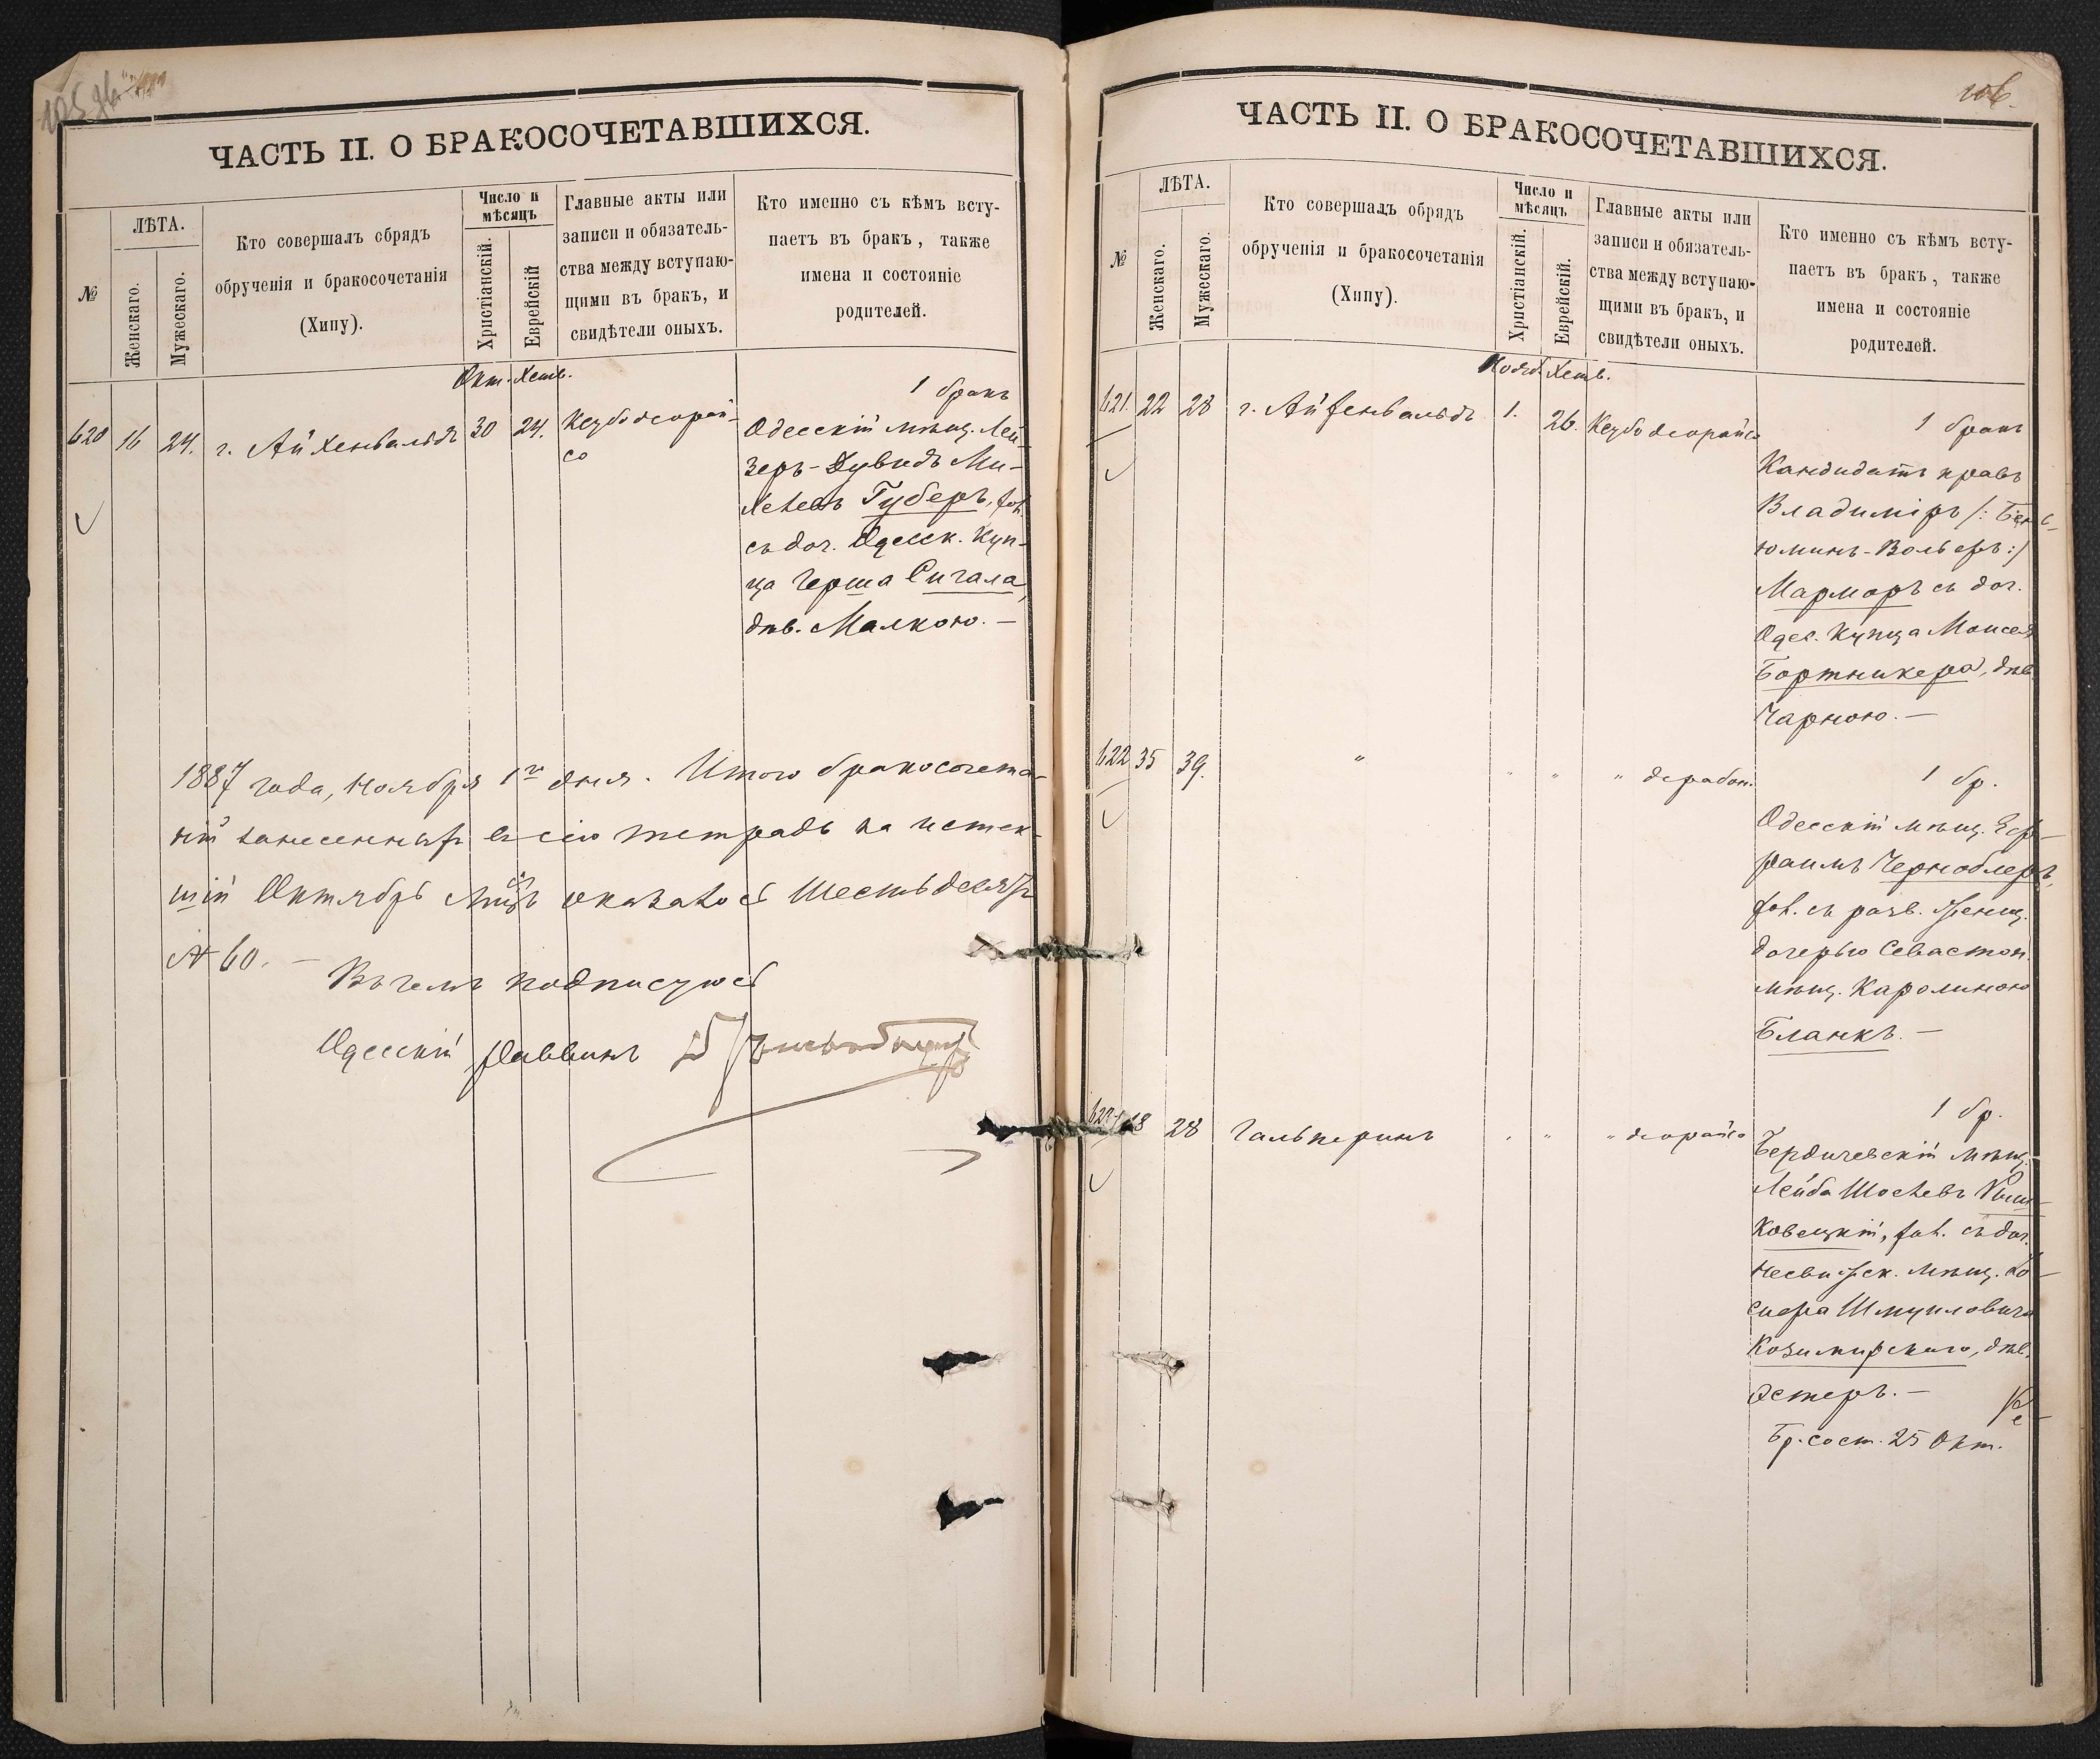 ЧАСТЬ II. О БРАКОСОЧЕТАВШИХСЯ.
№
ЛѢТА.
Женскаго.
Мужескаго.
Кто совершалъ обрядъ
обрученія и бракосочетанія
(Хипу).
Число и
мѣсяцъ
Христіанскій.
Еврейскій
Главные акты или
записи и обязатель-
ства между вступаю-
щими въ бракъ, и
свидѣтели оныхъ.
Кто именно съ кѣмъ всту-
паетъ въ бракъ, также
имена и состояніе
родителей.
Окт.
620 16 24. г. Айхенвальдъ 30 24. Кеубо деорай-
со
1 бракъ
Одесскій мѣщ. Лей-
зеръ-Дувидъ Ми-
хелевъ Губеръ, хол.
съ доч. Одесск. Куп-
ца Герша Сигала,
дѣв. Малкою. —
1887 года, Ноября 1го дня. Итого бракосочета-
ній занесенныхъ въ сію тетрадь за истек-
шій Октябрь мцъ оказалось Шестьдесятъ
№ 60. —
Въ чемъ подписуюсь
Одесскій Раввинъ
106.
ЧАСТЬ II. О БРАКОСОЧЕТАВШИХСЯ.
№
ЛѢТА.
Женскаго.
Мужескаго.
Кто совершалъ обрядъ
обрученія и бракосочетанія
(Хипу).
Число и
мѣсяцъ
Христіанскій.
Еврейскій.
Главные акты или
записи и обязатель-
ства между вступаю-
щими въ бракъ, и
свидѣтели оныхъ.
Кто именно съ кѣмъ всту-
паетъ въ бракъ, также
имена и состояніе
родителей.
Нояб.
621. 22 28 г. Айхенвальдъ 1. 26. Кеубо деорайсо
1 бракъ
Кандидатъ правъ
Владиміръ /: Бень-
юминъ-Вольфъ :/
Марморъ съ доч.
Одес. Купца Моисея
Бортникера, дѣв.
Чарною. —
622 35 39. " " " " дерабон.
1 бр.
Одесскій мѣщ. Еф-
раимъ Черноблеръ,
хол. съ разв. женщ.
дочерью Севастоп.
мѣщ. Каролиною
Бланкъ. —
623 18 28 Гальперинъ " " " деорайсо
1 бр.
Бердичевскій мѣщ.
Лейба Шоелевъ
ковецкій, хол. съ доч.
Несвижск. мѣщ.
Шмуиловича
Козимирскаго, дѣв.
Эстеръ. —
Бр. сост. 25 Окт.